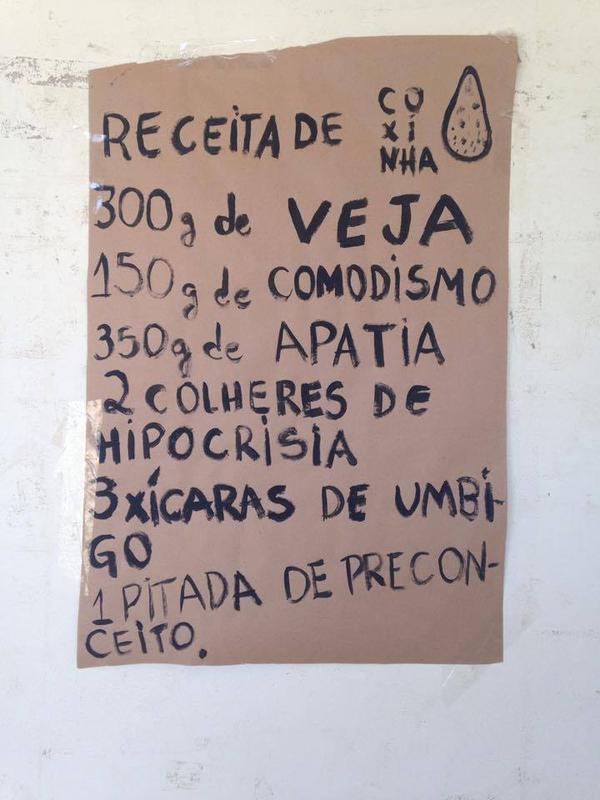 RECEITA DE COXINHA
300g de VEJA
150g de COMODISMO
350g de APATIA
2 COLHERES DE
HIPOCRISIA
3 XÍCARAS DE UMBI-
GO
1 PITADA DE PRECON-
CEITO.